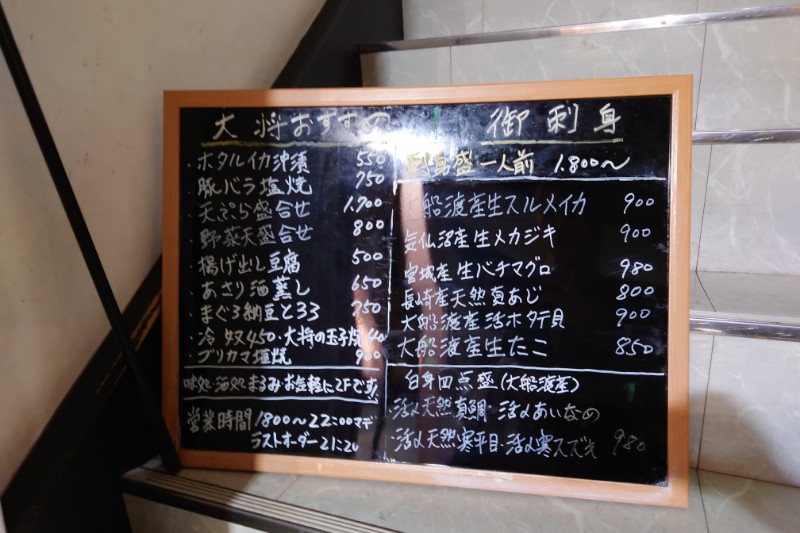 大将おすすめ
・ホタルイカ沖漬 550
・豚バラ塩焼 750
・天ぷら盛合せ 1,700
・野菜天盛合せ 800
・揚げ出し豆腐 500
・あさり酒蒸し 650
・まぐろ納豆とろろ 750
・冷奴450・大将の玉子焼
・ブリカマ塩焼 900
味処・酒処 まるみ・お気軽に2Fです
営業時間 1800〜22:00マデ
ラストオーダー
御刺身
刺身盛一人前 1.800〜
大船渡産生スルメイカ 900
気仙沼産生メカジキ 900
宮城産生バチマグロ 980
長崎産天然真あじ 800
大船渡産活ホタテ貝 900
大船渡産生たこ 850
白身四点盛(大船渡産)
・活〆天然真鯛・活〆あいなめ
・活〆天然寒平目・活〆寒スズキ 980